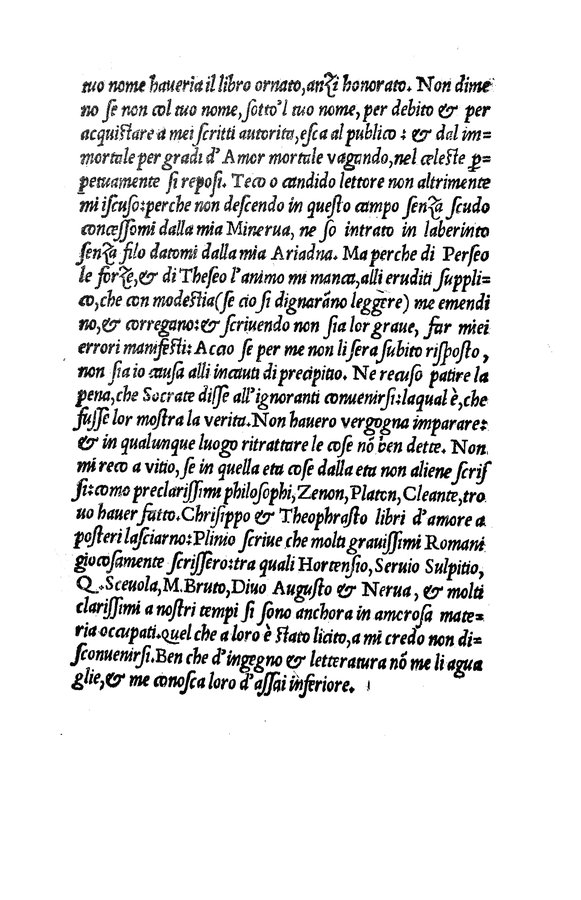 tuo nome haueria il libro ornato, anzi honorato. Non dime
no ſe non col tuo nome, ſotto'l tuo nome, per debito & per
acquiſtare a mei ſcritti autorita, eſca al publico : & dal im=
mortale per gradi d'Amor mortale vagando, nel celeſte ꝑ=
petuamente ſi repoſi. Teco o candido lettore non altrimente
mi iſcuſo: perche non deſcendo in queſto campo ſenza ſcudo
conceſſomi dalla mia Minerua, ne ſo intrato in laberinto
ſenza filo datomi dalla mia Ariadna. Ma perche di Perſeo
le forze, & di Theſeo l'animo mi manca, alli eruditi ſuppli=
co, che con modeſtia (ſe cio ſi dignarāno leggere) me emendi
no, & corregano: & ſcriuendo non ſia lor graue, far miei
errori manifeſti: Acao ſe per me non li ſera ſubito riſpoſto,
non ſia io cauſa alli incauti di precipitio. Ne recuſo patire la
pena, che Socrate diſſe all'ignoranti conuenirſi: laqual è, che
fuſſe lor moſtra la verita. Non hauero vergogna imparare:
& in qualunque luogo ritrattare le coſe nō ben dette. Non
mi reco a vitio, ſe in quella eta coſe dalla eta non aliene ſcriſ
ſi: como preclariſſimi philoſophi, Zenon, Platon, Cleante, tro
uo hauer fatto. Chriſippo & Theophraſto libri d'amore a
poſteri laſciarno: Plinio ſcriue che molti grauiſſimi Romani
giocoſamente ſcriſſero: tra quali Hortenſio, Seruio Sulpitio,
Q. Sceuola, M. Bruto, Diuo Auguſto & Nerua, & molti
clariſſimi a noſtri tempi ſi ſono anchora in amoroſa mate=
ria occupati. Quel che a loro è ſtato licito, a mi credo non di=
ſconuenirſi. Ben che d'ingegno & letteratura nō me li agua
glie, & me conoſca loro d'aſſai inferiore.